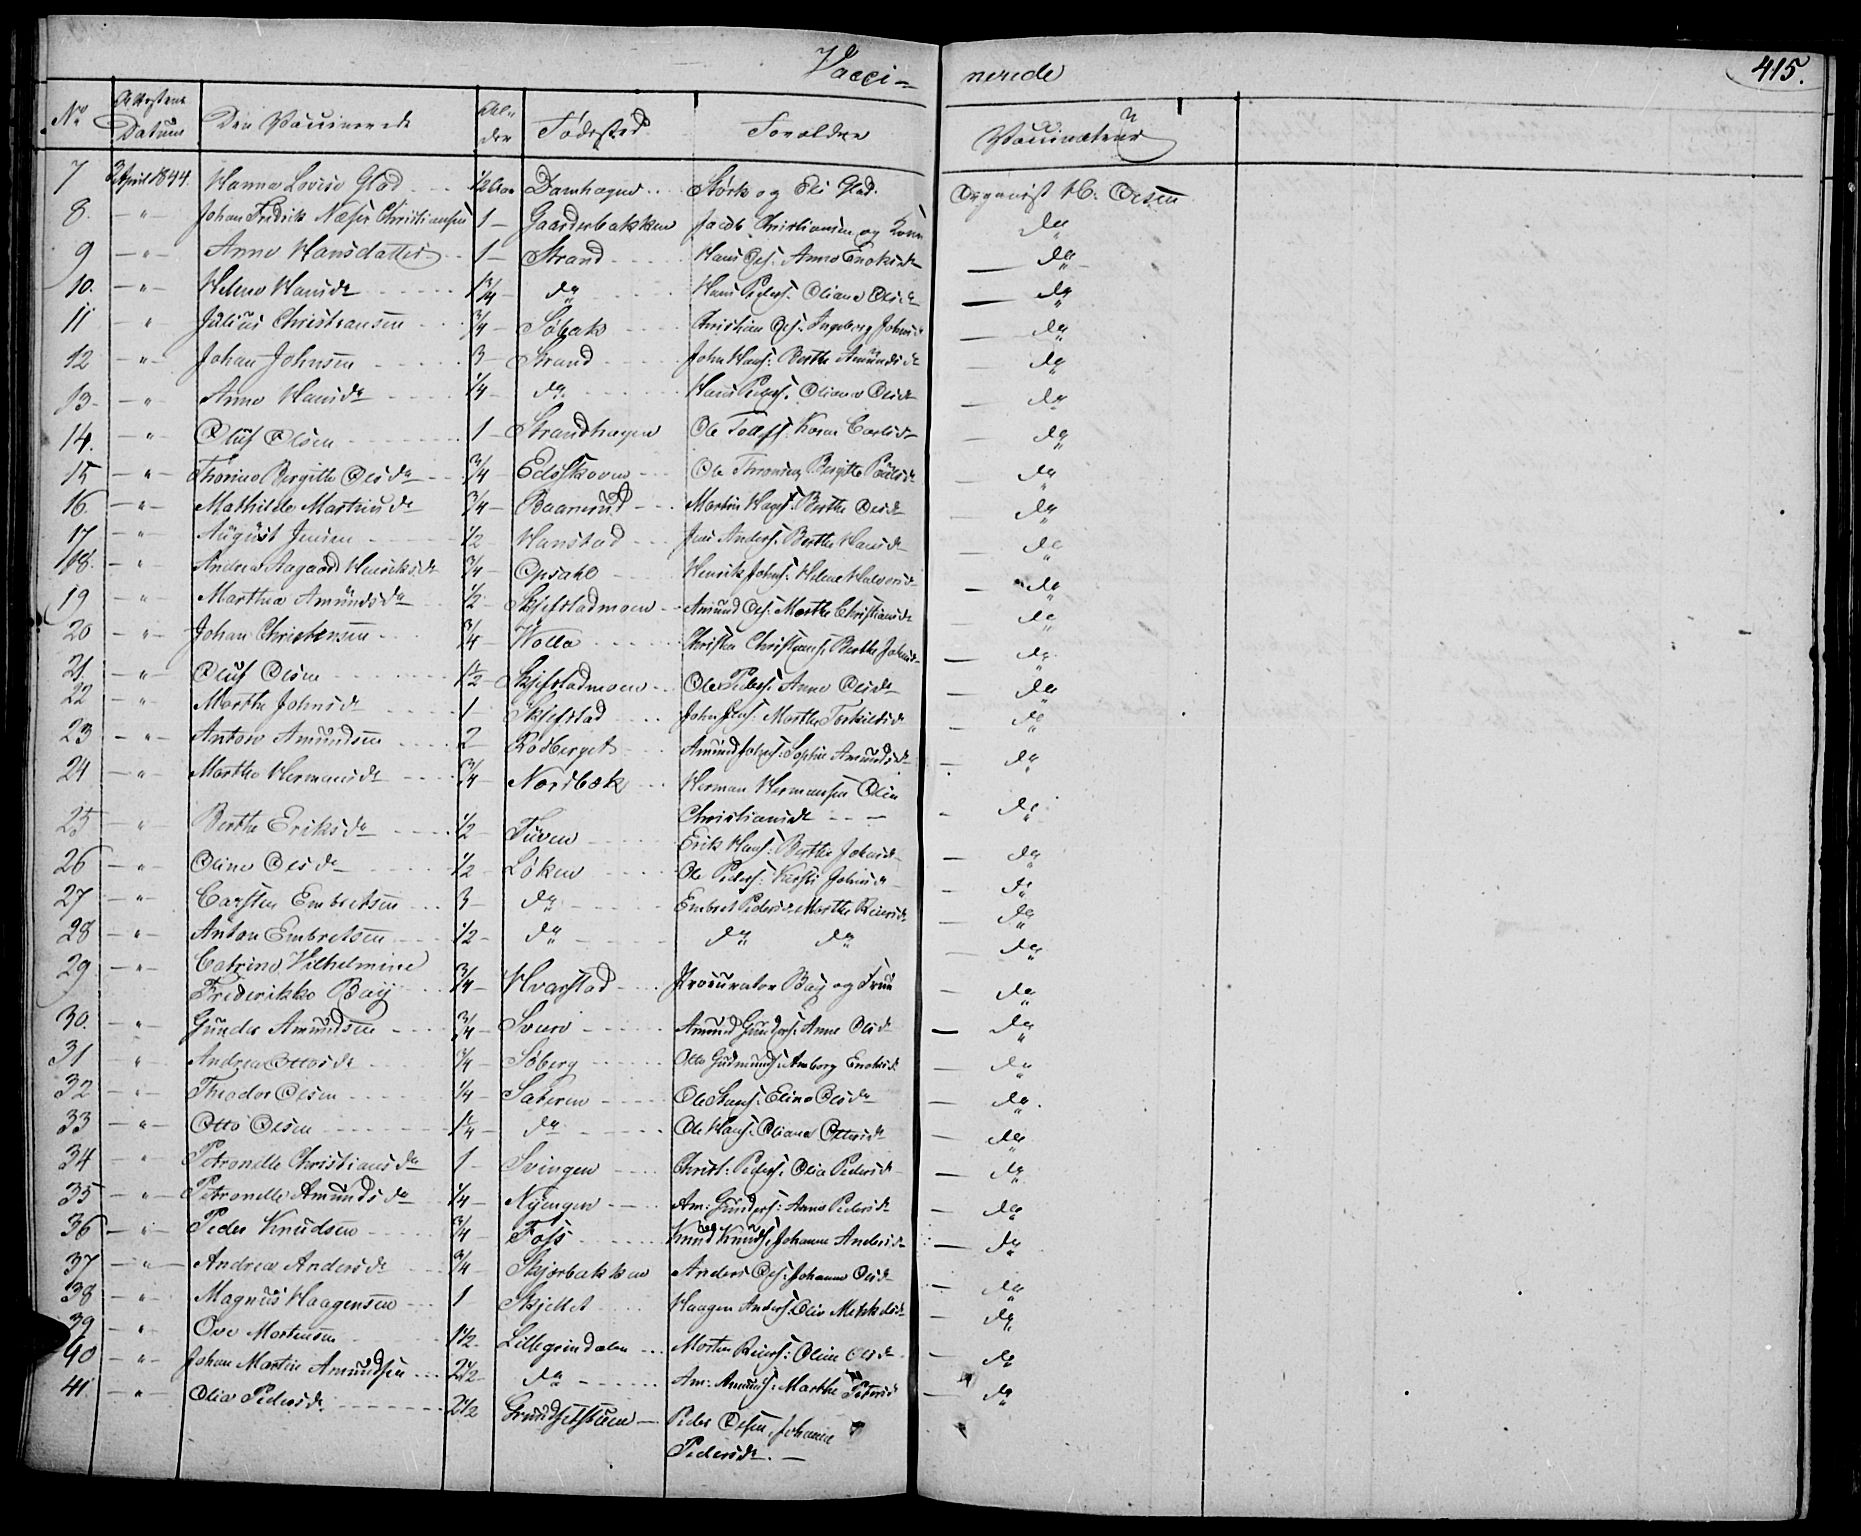 Vacci= nerede 415.
No Attestens Datum Den Vaccinerede Al- der Fødested Forældre Vaccinateur
7 3 April 1844. Hanna Lovise Glad 1/2 Aar Damhagen Størk og Eli Glad. Organist H. Olsen
8. " Johan Fredrik Næser Christiansen 1 Gaarderbakken Jacob Christiansen og Kone do
9 " Anne Hansdatter 1 Strand Hans Ols. Anne Enoksd do
10. " Helene Hansdr 1 3/4 do Hans Peders. Oliane Olsdr do
11 " Julius Christiansen 3/4 Søbak Christian Ols. Ingeborg Johnsd do
12 " Johan Johnsen 3 Strand John Hans. Berthe Amundsdr do
13 " Anne Hansdr 1/4 do Hans Peders. Oliane Olsdr do
14. " Oluf Olsen 1 Strandhagen Ole Tollefs. Karen Carlsdr do
15 " Thorine Birgitte Olsdr 3/4 Edsskoven Ole Birgitte Paulsdr do
16 " Mathilde Martinsdr 3/4 Baanrud Martin Hans. Berthe Olsdr do
17 " August Jensen 1/2 Hanstad Jens Anders. Berthe Hansdr do
18. " Andrea Aagaard Henriksdr 3/4 Opsahl Henrik Johns. Helene Halvorsdr do
19 " Marthea Amundsdr 1/2 Skjefstadmoen Amund Ols. Marthe Christiansdr do
20 " Johan Christensen 3/4 Wolla Christen Christians. Berthe Johnsd do
21 " Oluf Olsen 1 1/2 Skjefstadmoen Ole Peders. Anne Olsdr do
22 " Marthe Johnsdr 1 Skjefstad John Jens. Marthe Torkildsdr do
23 " Anton Amundsen 2 Rødberget Amund Johns. Sophie Amundsdr do
24 " Marthe Hermansdr 3/4 Nordbæk Herman Hermansen Olea
Christiansdr do
25 " Berthe Eriksdr 1/2 Tuven Erik Hans. Berthe Johnsdr do
26 " Oline Olsdr 1/2 Løken Ole Peders. Kersti Johnsdr do
27 " Carsten Embretsen 3 do Embret Peders. Marthe Reiersdr do
28 " Anton Embretsen 1/2 do do do do
29 " Catrine Vilhelmine
Frederikke Bay 3/4 Hvarstad Procurator Bay og Frue do
30. " Gunder Amundsen 3/4 Sveen Amund Gunders. Anne Olsdr do
31 " Andrea Ottosdr 3/4 Søberg Otto Gudmunds. Amborg Enoksd do
32 " Theodor Olsen 1/4 Sæteren Ole Hans. Eline Olsdr do
33 " Otto Olsen 1 1/4 do Ole Hans. Oliane Ottersdr do
34 " Petronelle Christiansdr 1 Svingen Christ. Peders. Olia Pedersdr do
35 " Petronelle Amundsdr 1/4 Nyengen Am: Gunders: Anne Pedersdr do
36 " Peder Knudsen 3/4 Foss Knud Knuds. Johanne Andersdr do
37 " Andrea Andersdr 3/4 Skjærbakken Anders Ols. Johanne Olsdr do
38 " Magnus Haagensen 1 Skjellet Haagen Anders. Olea Mekkelsdr do
39 " Ove Mortensen 1 1/2 Lillegrindalen Morten Reiers: Oline Olsdr do
40 " Johan Martin Amundsen 2 1/2 do Am: Amunds: Marthe Petersd do
41 " Olia Pedersdr 2 1/2 Grundsetstuen Peder Olsen, Johanne
Pedersdr.